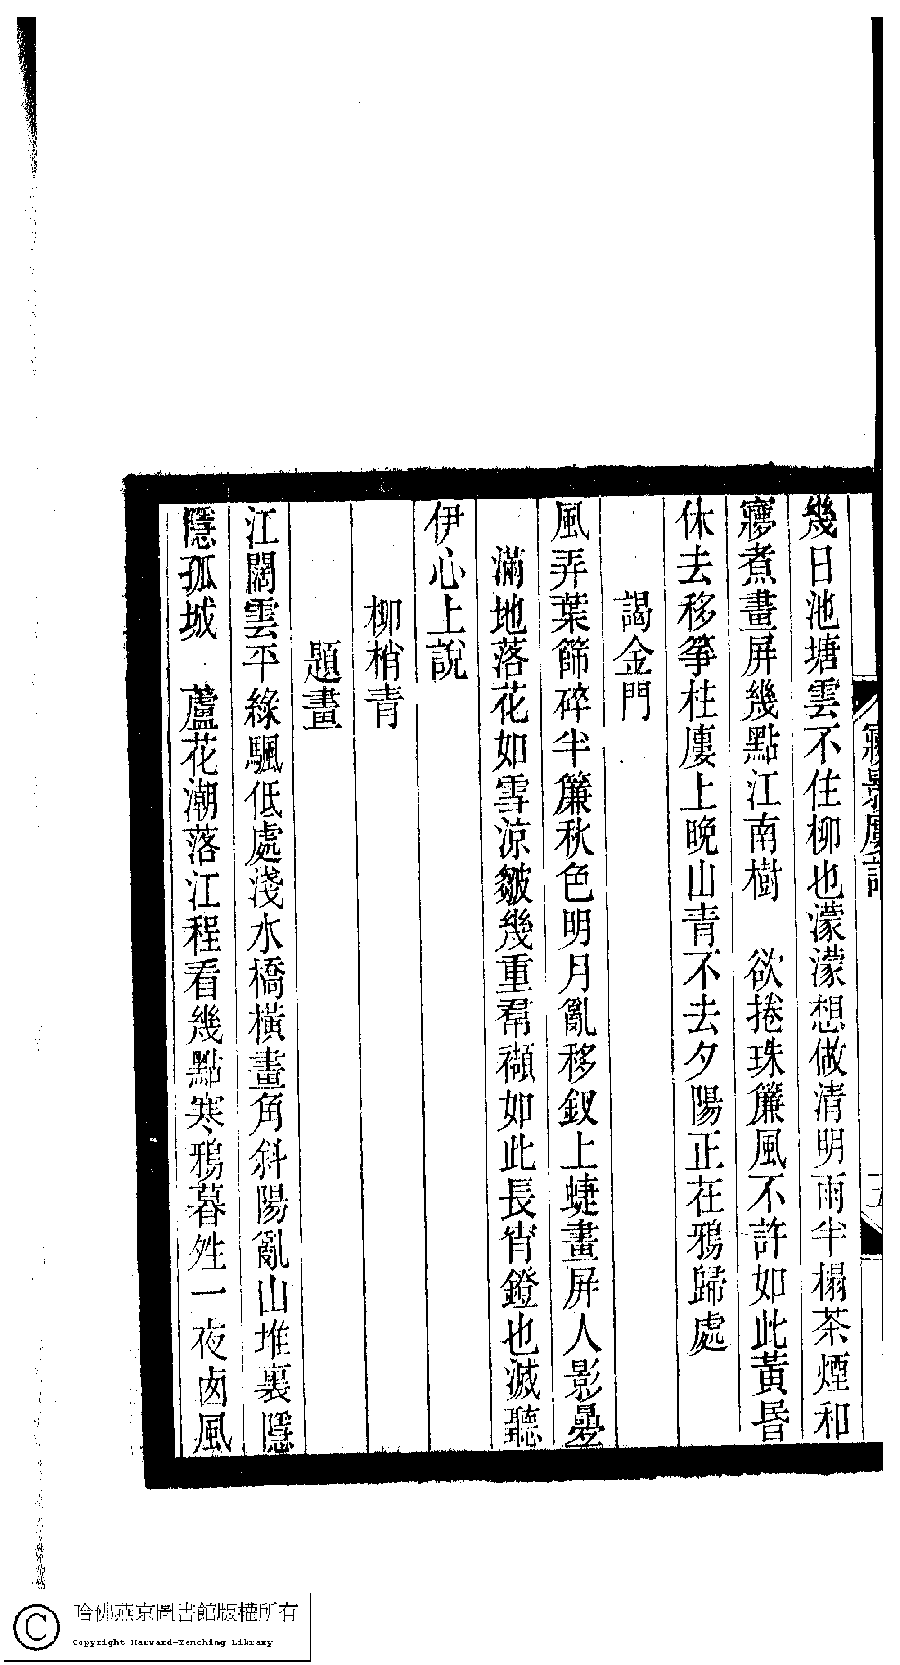 幾日池塘雲不住柳也濛濛想做清明雨半榻茶煙和
寢煮畫屏幾點江南樹　欲捲珠簾風不許如此黃昏
休去移箏柱廔上晚山青不去夕陽正在鴉歸處
謁金門
風弄葉篩碎半簾秋色明月亂移釵上蜨畫屏人影疊
滿地落花如雪涼皺幾重帬襭如此長宵鐙也滅聽
伊心上說
柳梢青
題畫
江闊雲平綠颿低處淺水橋橫畫角斜陽亂山堆裏隱
隱孤城　蘆花潮落江程看幾點寒鴉暮姓一夜卤風
哈佛燕京圖書館版權所有
Copyright Harvard-Yenching Library